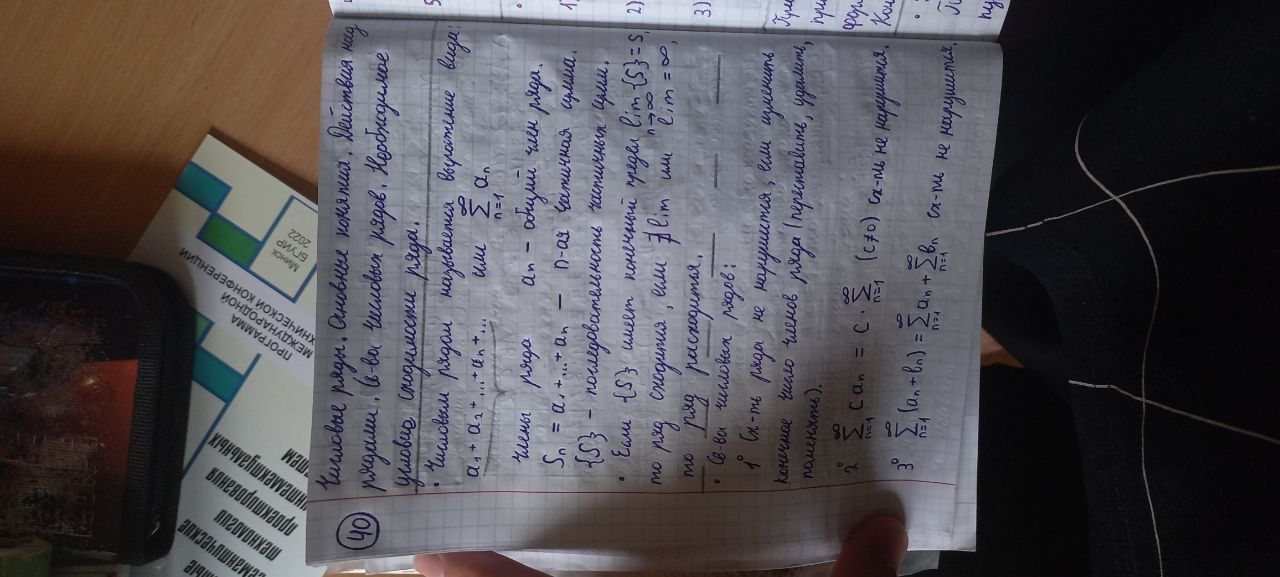 40
Числовые ряды. Основные понятия. Действия над
рядами. Св-ва числовых рядов. Необходимое
условие сходимости ряда.
• Числовым рядом называется выражение вида:
a₁ + a₂ + ... + aₙ + ... или ∞∑n=1 aₙ
Члены ряда aₙ - общий член ряда.
Sₙ = a₁ + ... + aₙ — n-ая частичная сумма.
{S} - последовательность частичных сумм.
• Если {S} имеет конечный предел lim n→∞ {S} = S,
то ряд сходится, если ∄ lim или lim = ∞,
то ряд расходится.
• Св-ва числовых рядов:
1° Сх-ть ряда не нарушится, если изменить
конечное число членов ряда (переставить, удалить,
поменять).
2° ∞∑n=1 C aₙ = C · ∞∑n=1 (C≠0) сх-ть не нарушится.
3° ∞∑n=1 (aₙ + bₙ) = ∞∑n=1 aₙ + ∞∑n=1 bₙ сх-ть не нарушится.
5
1)
2)
3)
при
фор
ПРОГРАММА
МЕЖДУНАРОДНОЙ
ХНИЧЕСКОЙ КОНФЕРЕНЦИИ
МИНСК
БГУИР
2022
ЕМАНТИЧЕСКИЕ
ТЕХНОЛОГИИ
ПРОЕКТИРОВАНИЯ
НТЕЛЛЕКТУАЛЬНЫХ
ТЕМ